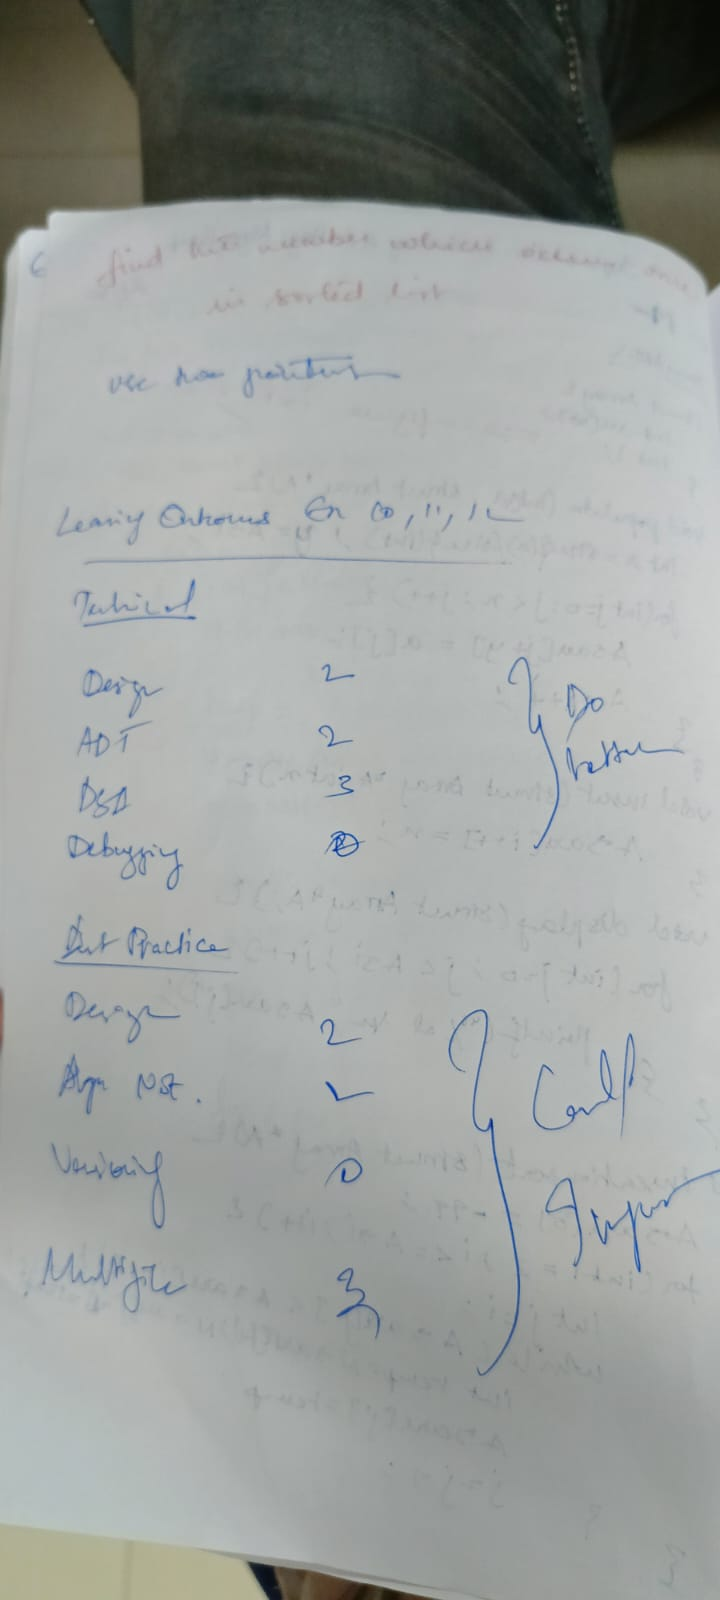 6 find the number which occurs once
in sorted list
use two pointers
Learning Outcomes Ex 10, 11, 12
Technical
Design 2
ADT 2
DSA 3
Debugging
Do
better
Best Practice
Design 2
2
Versioning 0
Multifile 3
Could
Improve